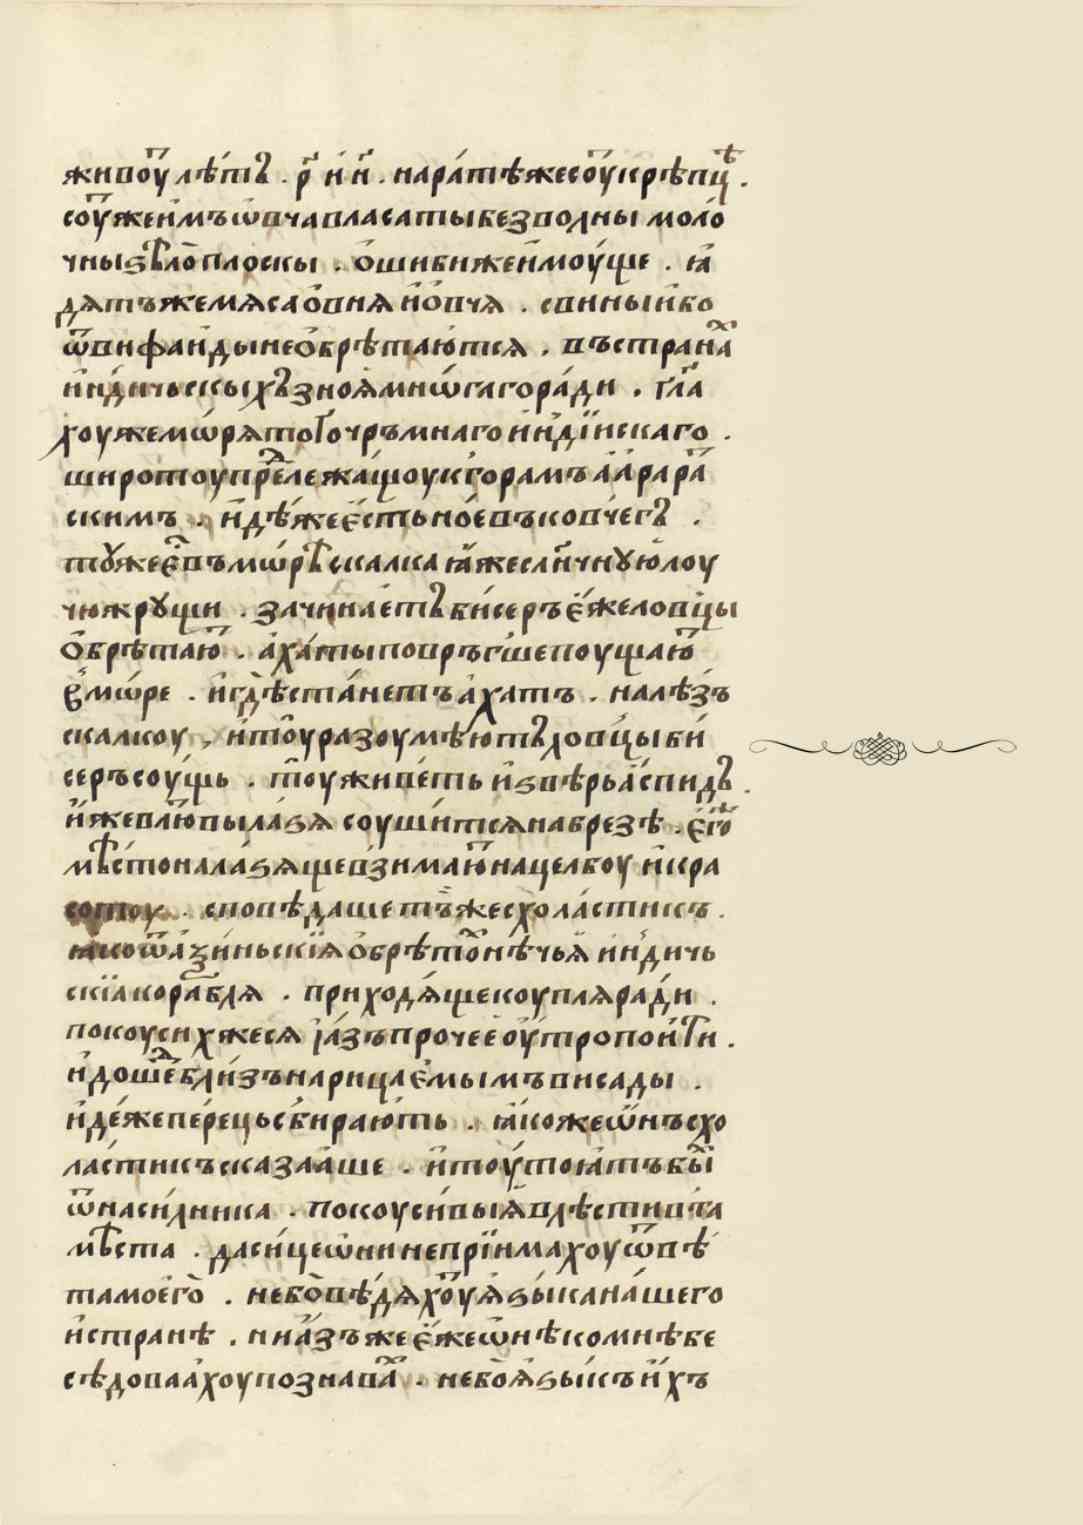 живоу҇ лѣ́тъ . р҃ и҆ н҃ . нара́тѣжесоу҇ крѣпцѣ .
соу҇жеи҆мъ ѡ҆вча власаты безволны моло́
чны ѕѣло̀ плоскы . о҆шибижеи҆моу́ще . ꙗ҆
дѧтъжемѧса о҆внѧ и҆ о҆вчѧ . свиныи҆ бо
ѿ вифаи҆ды не о҆брѣтаю́тсѧ . въ страна́х
и҆нді́чьскыхъ зноѧ мнѡ́гаго ра́ди . гл҃а
хоуже мѡ́рѧ того̀ чръмнаго и҆ и҆нді́искаго .
широтоу пре́длежа́щоу к гора́мъ а҆ а҆рара́т
скимъ . и҆дѣ́же є҆́сть но́евъ ковче́гъ .
тꙋже є҆́ въ мѡ́рѣ скалка ꙗ҆́же сл҃нчнꙋю лоу
чю жрꙋщи . зачина́етъ би́серъ є҆́же ловцы
о҆брѣтаю́т . а҆ха́ты по връгше поущаю́т
в мѡ́ре . и҆ гдѣ̀ ста́нетъ а҆хатъ . налѣ́зъ
скалкоу , и҆ тоу разоумѣ́ютъ ловцы би́
серъ соу́щь . тоу живе́ть и҆ ѕвѣрь а҆́спидъ .
и҆́же вл҃ю́ вы лаѕѧ соуши́тсѧ на брезѣ . є҆го́же
мѣ́сто нала́ѕѧще взимаю́т на целбоу и҆ кра
сотоу . сповѣ́даше тъже схола́стикъ .
ꙗ҆ко ѿ а҆ѯи́ньскїѧ о҆брѣтон нѣ́чьѧ и҆ндичь
скїа корабля . приходѧ́ще коуплѧ ра́ди .
покоусихжесѧ ꙗ҆́зъ прочее оу҆́тро пои҆ти .
и҆дошед бли́зъ нарица́емымъ висады .
и҆де́же пе́рець сбираю́ть . ꙗ҆коже ѡ҆́нъ схо
ла́стикъ сказа́аше . и҆ тоу́ то ꙗ҆́тъ бы́х
ѿ наси́лника . покоуси́выйсѧ влѣ́сти в та
мѣ́ста . да си́це ѡ҆ни не прїимахоу ѿвѣ́
та моего̀ . не бо̀ вѣ́дѧхоу ѧ҆зы́ка на́шего
и҆ странѣ̀ . ни а҆́зъже є҆́же ѡ҆ нѣ́ко мнѣ бе
сѣ́доваа҆хоу познава́х . не бо̀ ѧ҆зы́къ и҆́хъ